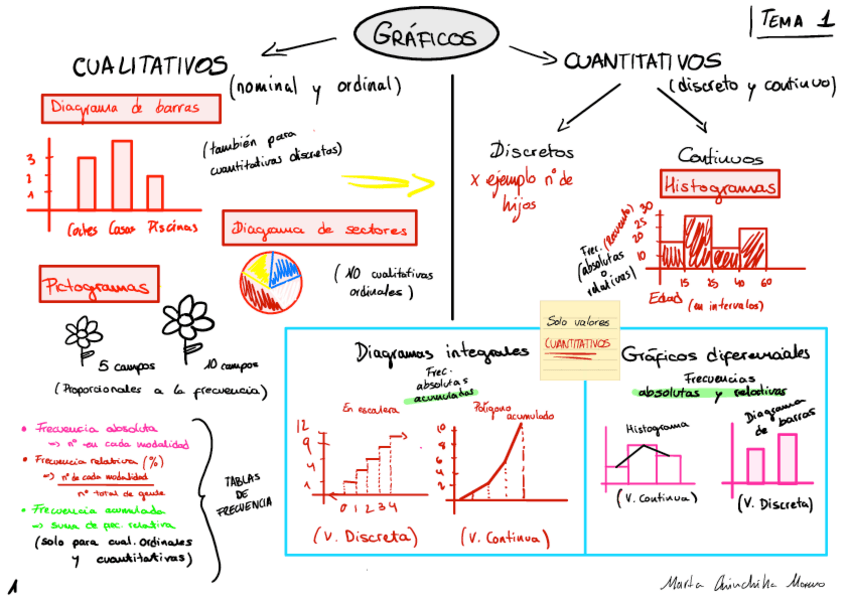 TEMA 1
GRÁFICOS
CUALITATIVOS
(nominal y ordinal)
Diagrama de barras
(también para
cuantitativas discretas)
3
2
1
Coches Casas Piscinas
Diagrama de sectores
(NO cualitativas
ordinales)
Pictogramas
5 campos
10 campos
(Proporcionales a la frecuencia)
• Frecuencia absoluta
=> nº en cada modalidad
• Frecuencia relativa (%)
=> nº de cada modalidad
nº total de gente
• Frecuencia acumulada
=> suma de frec. relativa
(solo para cual. ordinales
y cuantitativas)
TABLAS
DE
FRECUENCIA
CUANTITATIVOS
(discreto y continuo)
Discretos
x ejemplo nº de
hijos
Continuos
Histogramas
Frec. (Recuento)
(absolutas
o
relativas)
30
25
20
10
15 25 40 60
Edad (en intervalos)
Solo valores
CUANTITATIVOS
Diagramas integrales
Frec.
absolutas
acumuladas
En escalera
12
9
4
1
0 1 2 3 4
(V. Discreta)
Polígono acumulado
10
8
6
4
2
(V. Continua)
Gráficos diferenciales
Frecuencias
absolutas y relativas
Histograma
(V. Continua)
Diagrama
de barras
(V. Discreta)
1
Marta